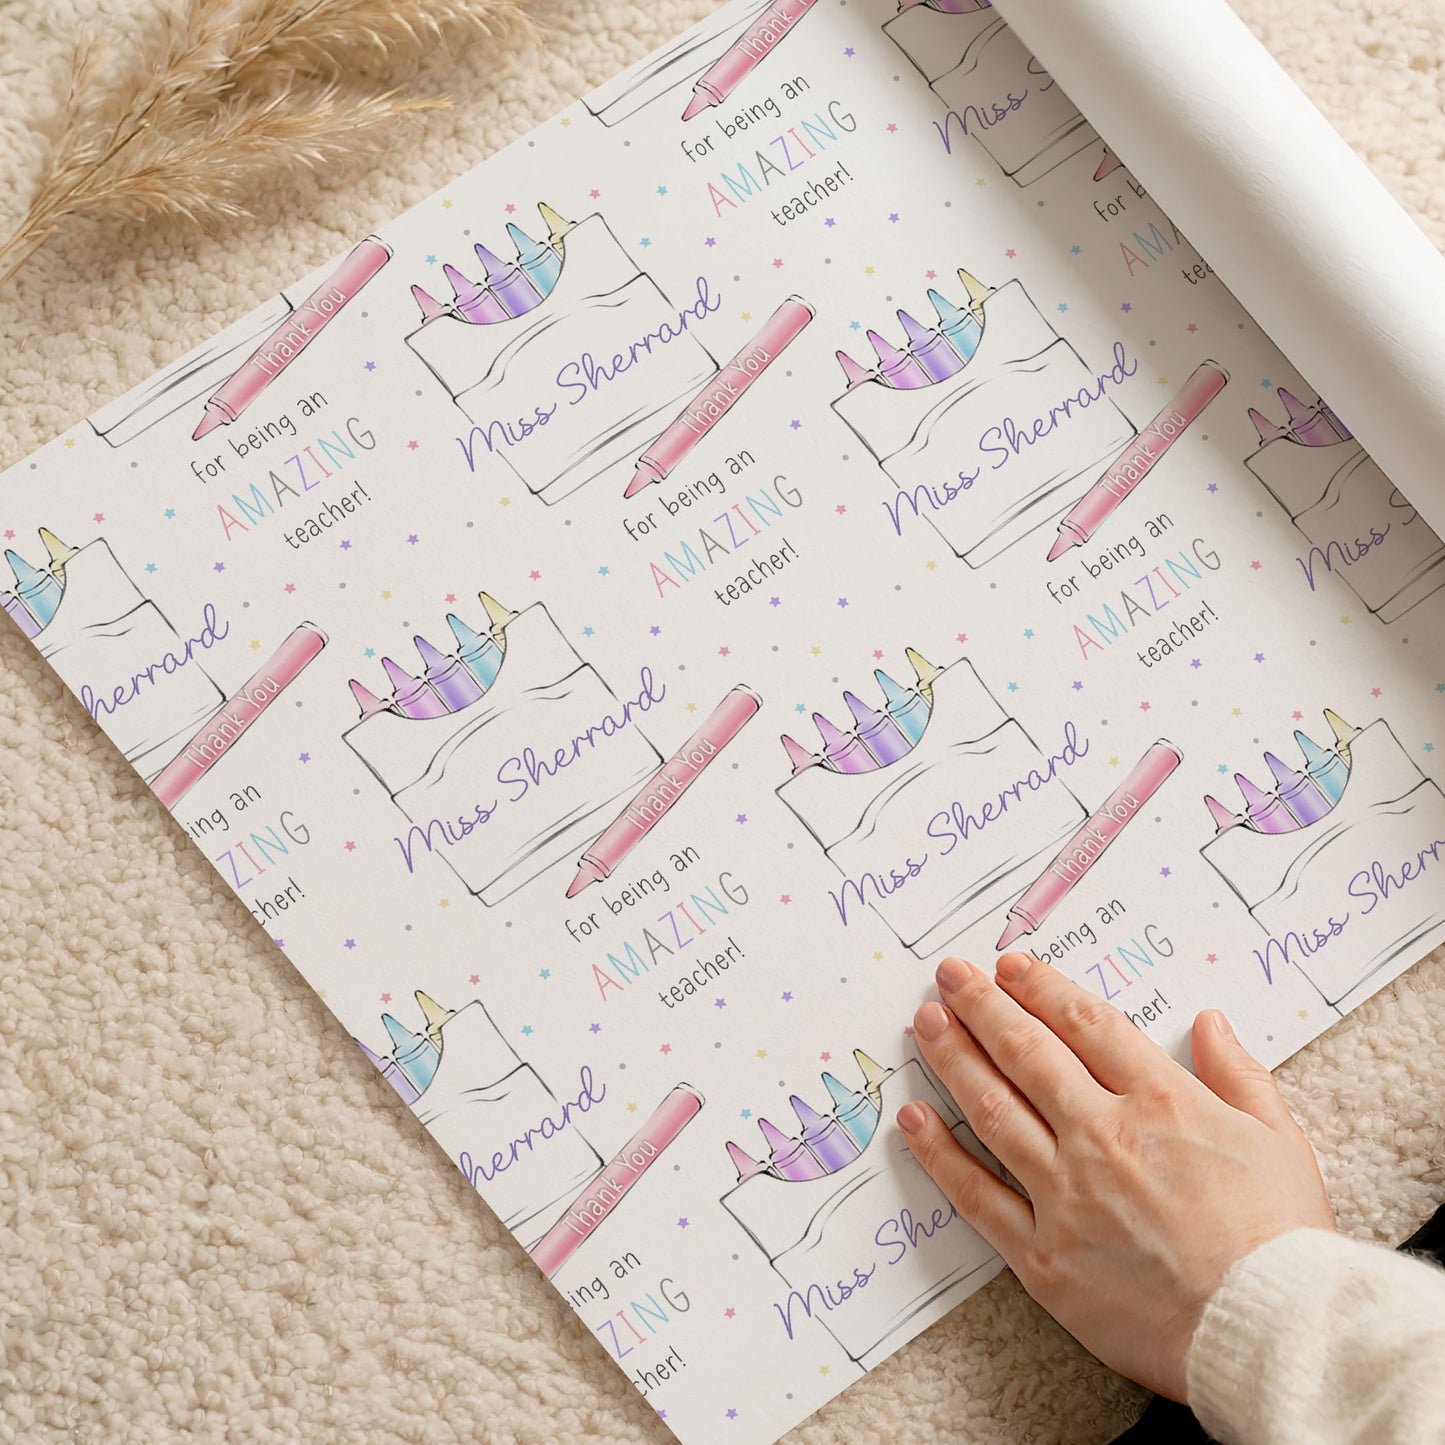 Thank
for being an
AMAZING
teacher!
Miss S
for b
AMA
tea
Thank You
for being an
AMAZING
teacher!
Miss Sherrard
Thank You
for being an
AMAZING
teacher!
Miss Sherrard
Thank You
for being an
AMAZING
teacher!
Miss S
herrard
Thank You
ing an
ZING
cher!
Miss Sherrard
Thank You
for being an
AMAZING
teacher!
Miss Sherrard
Thank You
being an
ZING
her!
Miss Sherr
herrard
Thank You
ing an
ZING
cher!
Miss Sher